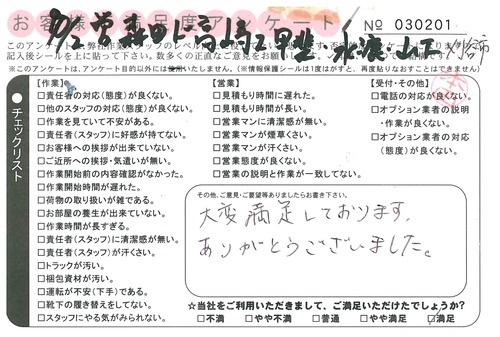 お客様満足度アンケート
No 030201
記入後シールを上に貼って下さい。
※このアンケートは、アンケート目的以外には使用いたしません。(※情報保護シールは1度はがすと、再度貼りなおすことはできません)
チェックリスト
【作業】
□責任者の対応(態度)が良くない。
□他のスタッフの対応(態度)が良くない。
□作業を見ていて不安がある。
□責任者(スタッフ)に好感が持てない。
□お客様への挨拶が出来ていない。
□ご近所への挨拶・気遣いが無い。
□作業開始前の内容確認がなかった。
□作業開始時間が遅れた。
□荷物の取り扱いが雑である。
□お部屋の養生が出来ていない。
□作業時間が長すぎる。
□責任者(スタッフ)に清潔感が無い。
□責任者(スタッフ)が汗くさい。
□トラックが汚い。
□梱包資材が汚い。
□運転が不安(下手)である。
□靴下の履き替えをしてない。
□スタッフにやる気がみられない。
【営業】
□見積もり時間に遅れた。
□見積もり時間が長い。
□営業マンに清潔感が無い。
□営業マンが煙草くさい。
□営業マンが汗くさい。
□営業態度が良くない。
□営業の説明と作業が一致してない。
【受付・その他】
□電話の対応が良くない。
□オプション業者の説明
・作業が良くない。
□オプション業者の対応
(態度)が良くない。
その他、ご意見・ご要望等ありましたらお書き下さい。
大変満足しております。
ありがとうございました。
☆当社をご利用いただきまして、ご満足いただけたでしょうか?
□不満 □やや不満 □普通 □やや満足 □満足